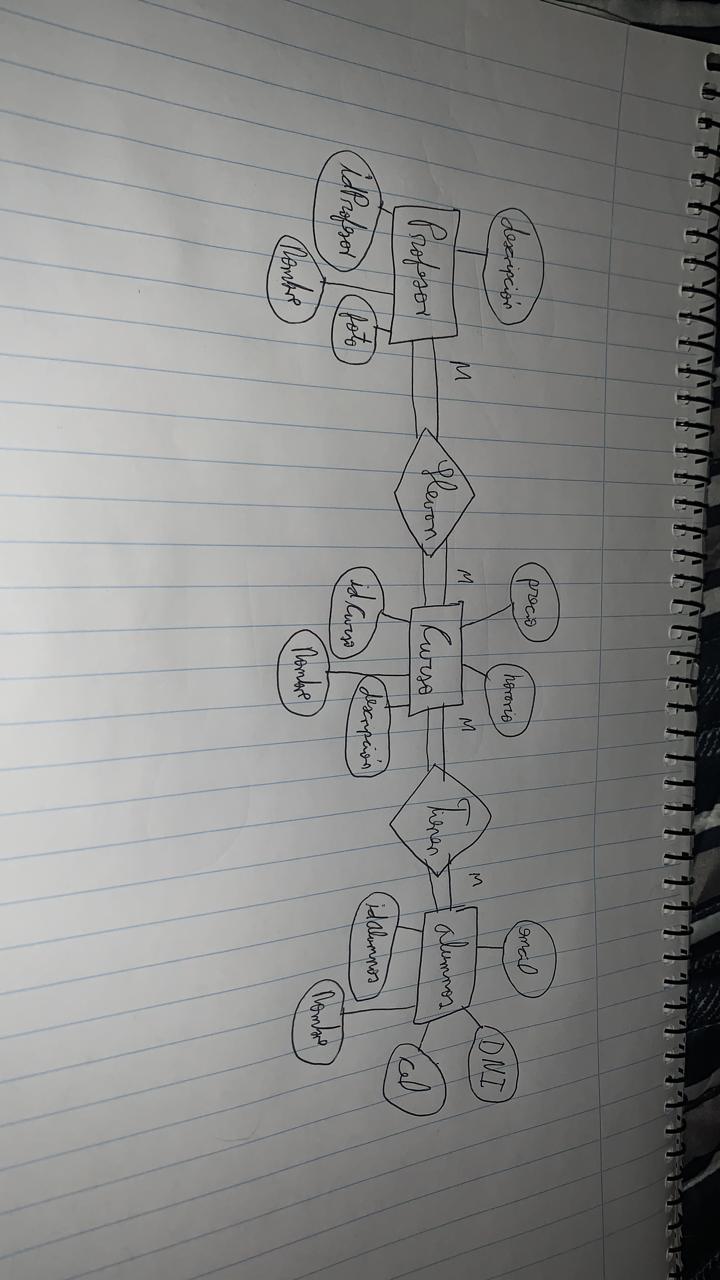 descripción
Profesor
idProfesor
Nombre
foto
M
llevan
M
precio
horario
Curso
idCurso
Nombre
descripción
M
Tienen
M
email
DNI
alumnos
idalumnos
Nombre
Cel